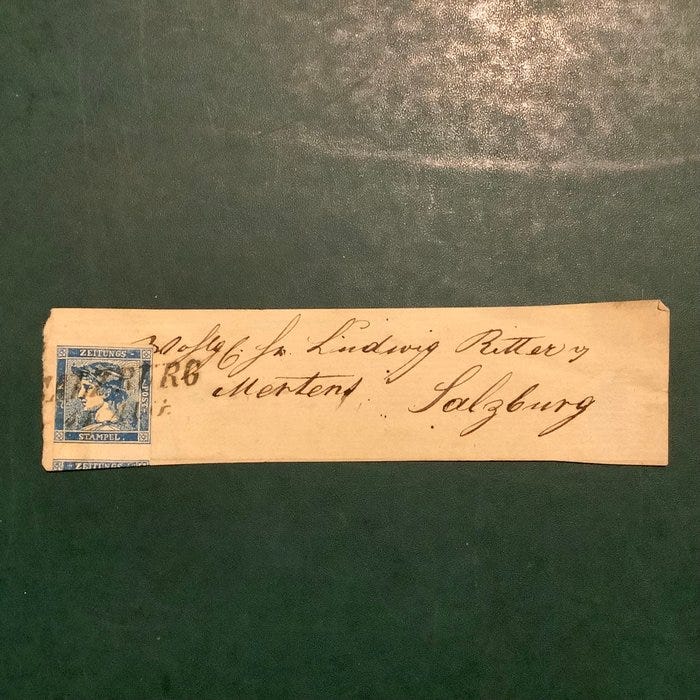 ZEITUNGS-
POST-
STAMPEL.
ZEITUNGS
Ludwig Ritter v
Mertens
Salzburg